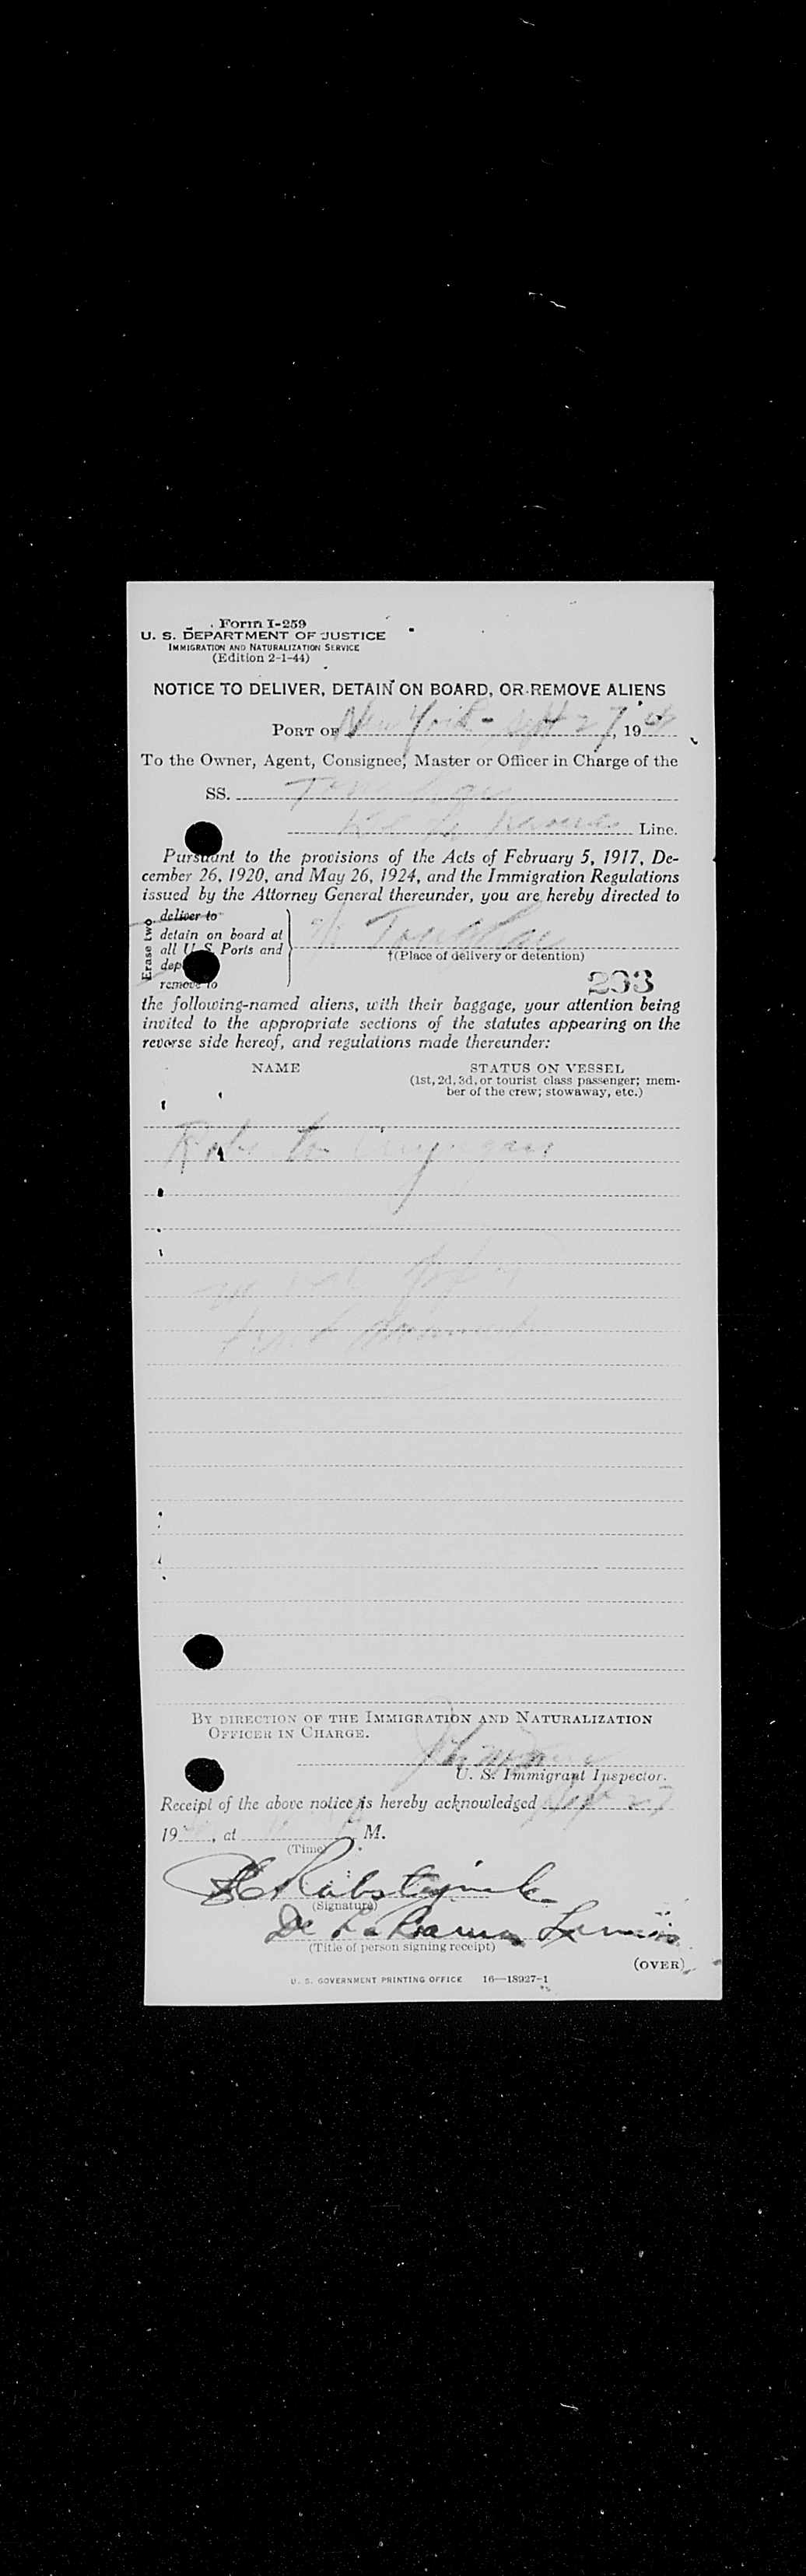 Form I-259
U. S. DEPARTMENT OF JUSTICE
IMMIGRATION AND NATURALIZATION SERVICE
(Edition 2-1-44)
NOTICE TO DELIVER, DETAIN ON BOARD, OR REMOVE ALIENS
PORT OF New York - Sept 27, 19
To the Owner, Agent, Consignee, Master or Officer in Charge of the
SS.
Line.
Pursuant to the provisions of the Acts of February 5, 1917, De-
cember 26, 1920, and May 26, 1924, and the Immigration Regulations
issued by the Attorney General thereunder, you are hereby directed to
Erase two
deliver to
detain on board at
all U. S. Ports and
dep
remove to
†(Place of delivery or detention)
233
the following-named aliens, with their baggage, your attention being
invited to the appropriate sections of the statutes appearing on the
reverse side hereof, and regulations made thereunder:
NAME STATUS ON VESSEL
(1st, 2d, 3d, or tourist class passenger; mem-
ber of the crew; stowaway, etc.)
BY DIRECTION OF THE IMMIGRATION AND NATURALIZATION
OFFICER IN CHARGE.
U. S. Immigrant Inspector.
Receipt of the above notice is hereby acknowledged Sept 27
19 , at M.
(Time)
(Signature)
De La Rama
(Title of person signing receipt)
(OVER)
U. S. GOVERNMENT PRINTING OFFICE 16—18927-1